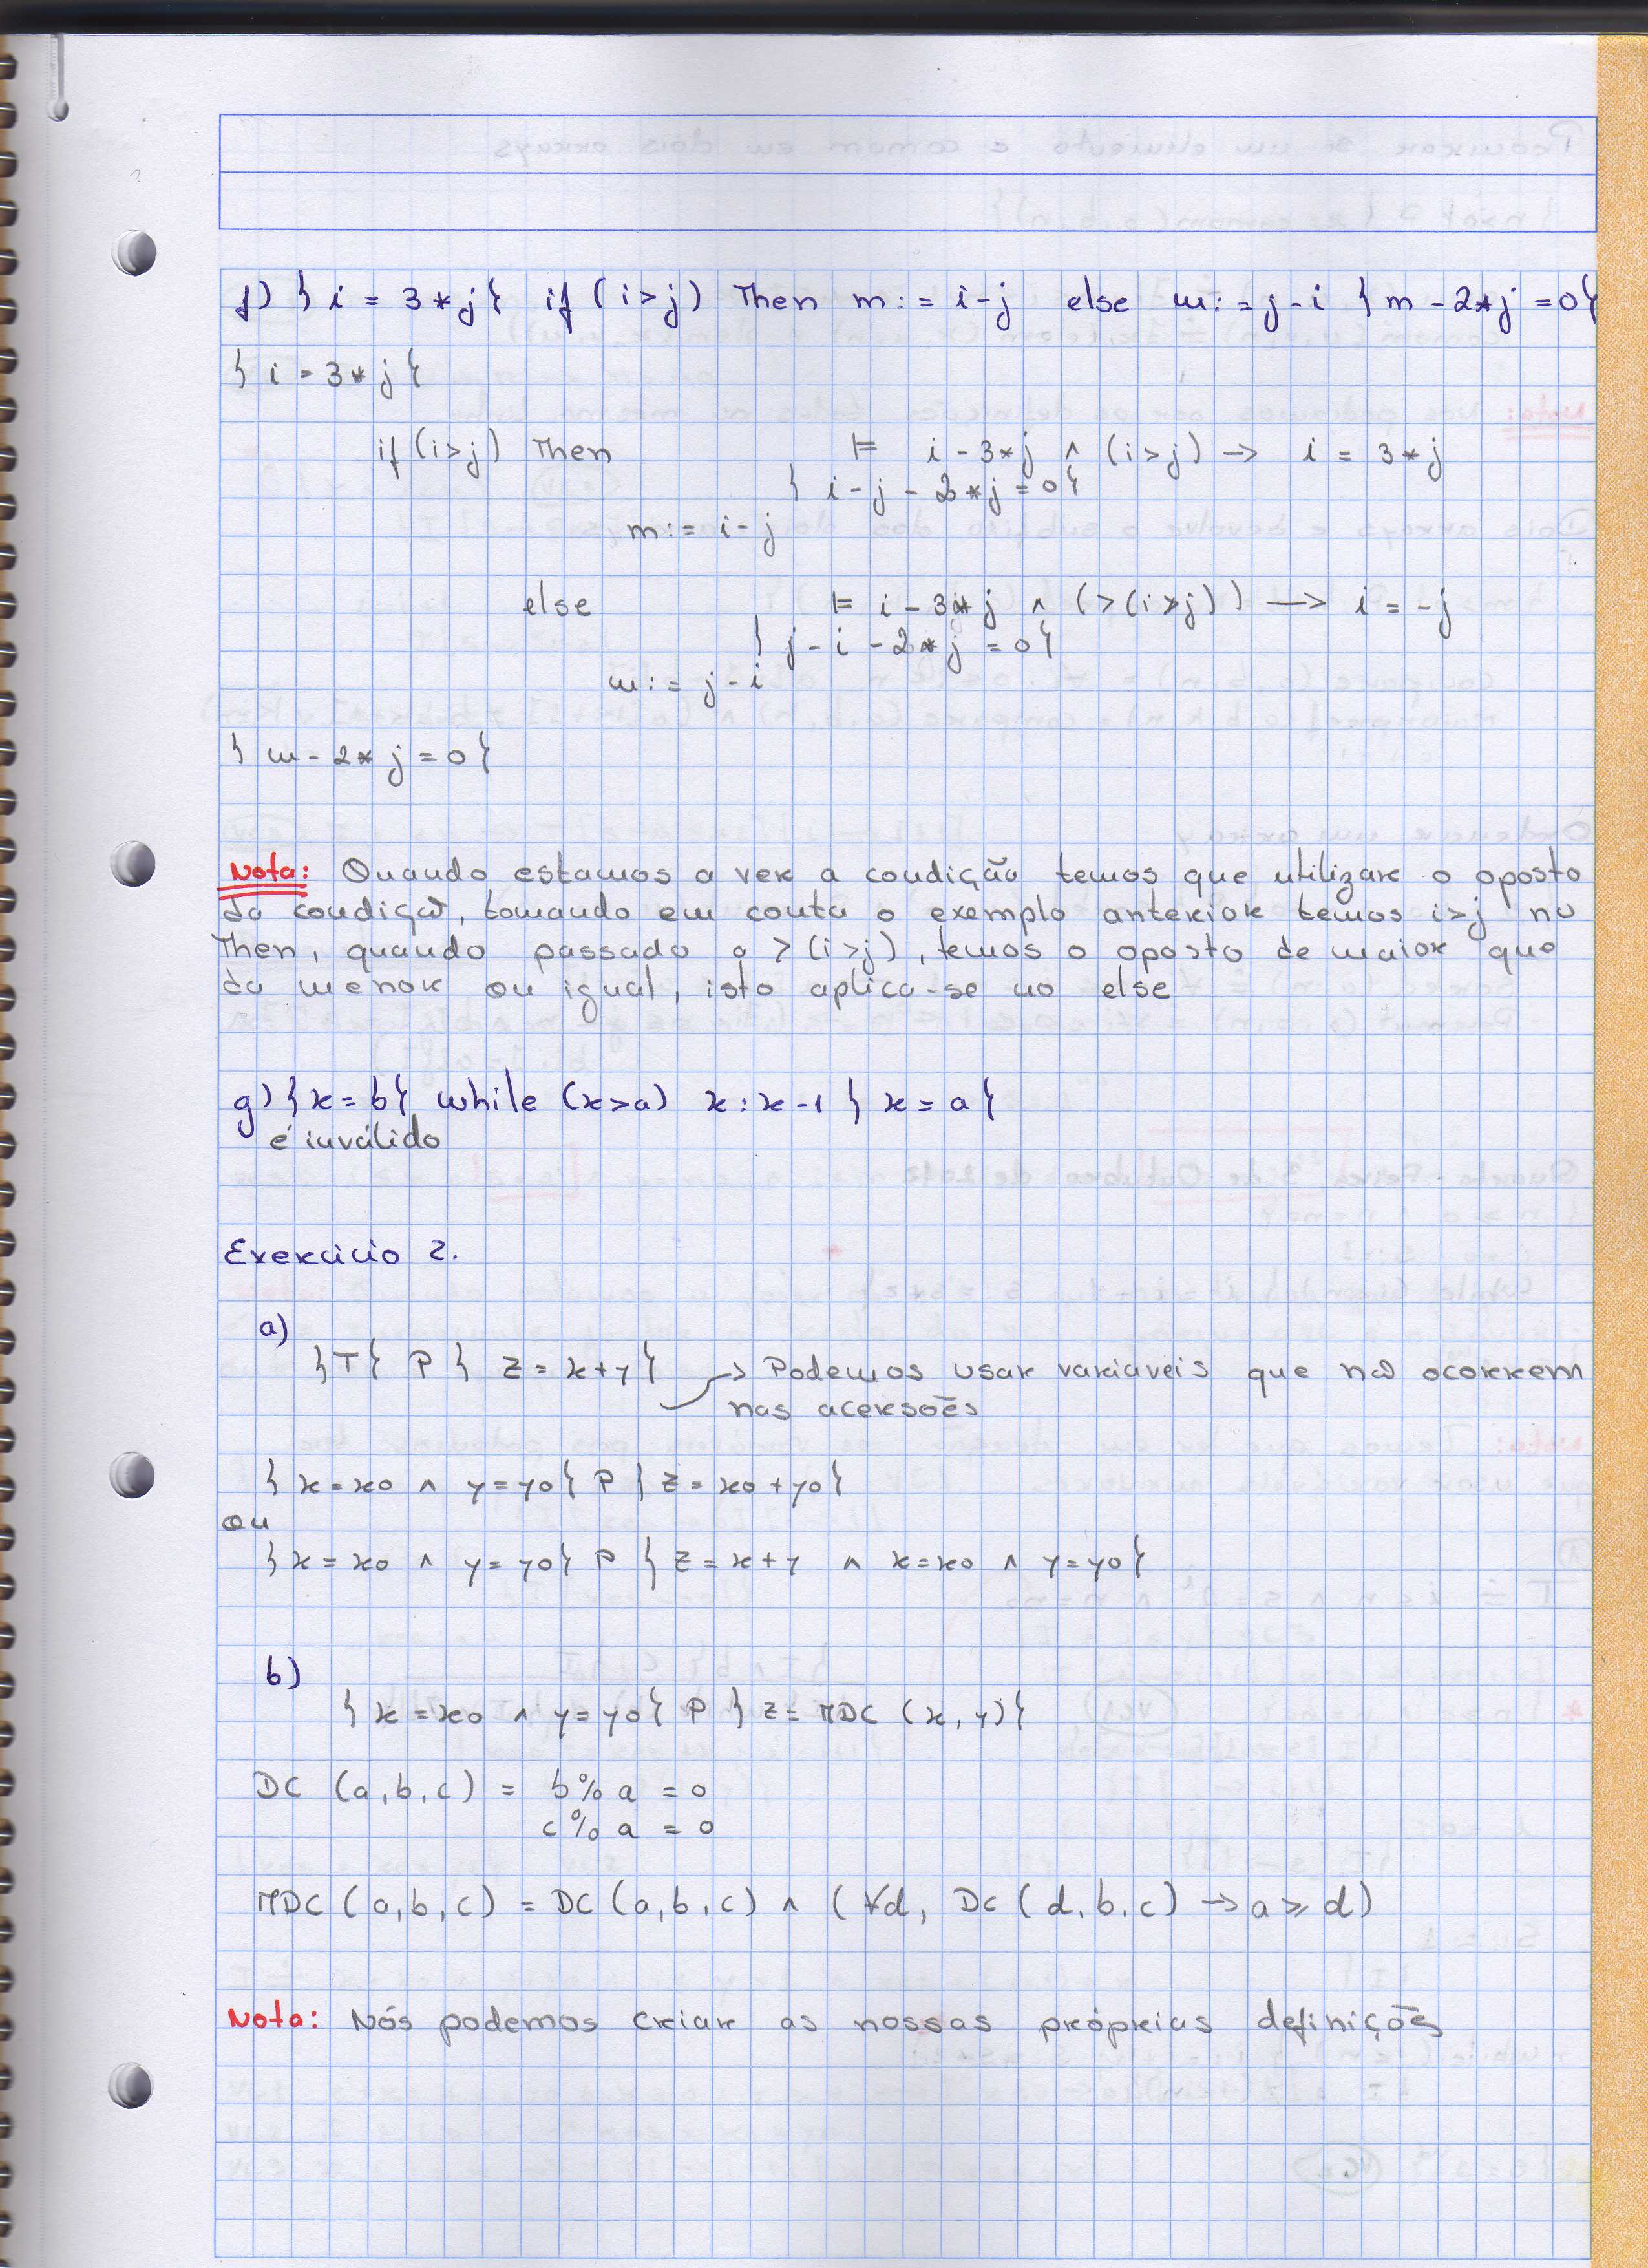 f) { i = 3 * j } if (i > j) Then m := i - j else m := j - i { m - 2 * j = 0 }
{ i = 3 * j }
if (i > j) Then ⊨ i - 3 * j ∧ (i > j) → i = 3 * j
{ i - j - 2 * j = 0 }
m := i - j
else ⊨ i - 3 * j ∧ (> (i > j)) → i = -j
{ j - i - 2 * j = 0 }
m := j - i
{ m - 2 * j = 0 }
Nota: Quando estamos a ver a condição temos que utilizar o oposto
da condição, tomando em conta o exemplo anterior temos i > j no
Then, quando passado a > (i > j), temos o oposto de maior que
da menor ou igual, isto aplica-se no else
g) { x = b } while (x > a) x : x - 1 { x = a }
é inválido
Exercicio 2.
a)
{ T } P { z = x + y } → Podemos usar variaveis que não ocorrem
nas acersões
{ x = x0 ∧ y = y0 } P { z = x0 + y0 }
ou
{ x = x0 ∧ y = y0 } P { z = x + y ∧ x = x0 ∧ y = y0 }
b)
{ x = x0 ∧ y = y0 } P { z = MDC (x, y) }
DC (a, b, c) = b % a = 0
c % a = 0
MDC (a, b, c) = DC (a, b, c) ∧ (∀d, DC (d, b, c) → a ≥ d)
Nota: Nós podemos criar as nossas próprias definições